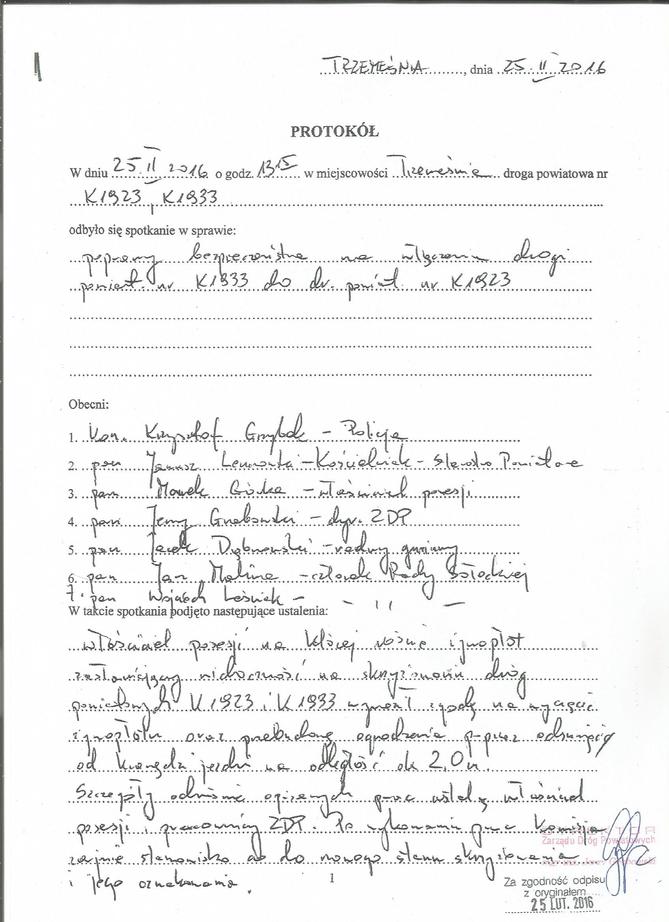 TRZEMEŚNIA, dnia 25.II 2016
PROTOKÓŁ
W dniu 25.II 2016 o godz. 13 15 w miejscowości Trzemeśnia droga powiatowa nr
K1923, K1933
odbyło się spotkanie w sprawie:
poprawy bezpieczeństwa na włączeniu drogi
powiat. nr K1933 do dr. powiat nr K1923
Obecni:
1. Krzysztof Grzybek – Policja
2. pan Janusz – Kościelniak – Starostwo Powiatowe
3. pan Marek Górka – właściciel posesji
4. pan Jerzy Grabowski – dyr. ZDP
5. pan Jacek Dąbrowski – radny gminny
6. pan Jan Malina – członek Rady Sołeckiej
7. pan Wojciech Leśniak – – 11 –
W takcie spotkania podjęto następujące ustalenia:
właściciel posesji na której rośnie żywopłot
zasłaniający widoczność na skrzyżowaniu dróg
powiatowych K1923 i K1933 wyraził zgodę na wycięcie
żywopłotu oraz przebudowę ogrodzenia poprzez odsunięcie
od krawędzi jezdni na odległość ok 2,0 m.
Szczegóły odnośnie opisanych prac ustalą właściciel
posesji i pracownicy ZDP. Po wykonaniu prac Komisja
zajmie stanowisko co do nowego stanu skrzyżowania
i jego oznakowania.
Zarządu Dróg Powiatowych
1
Za zgodność odpisu
z oryginałem
25 LUT. 2016